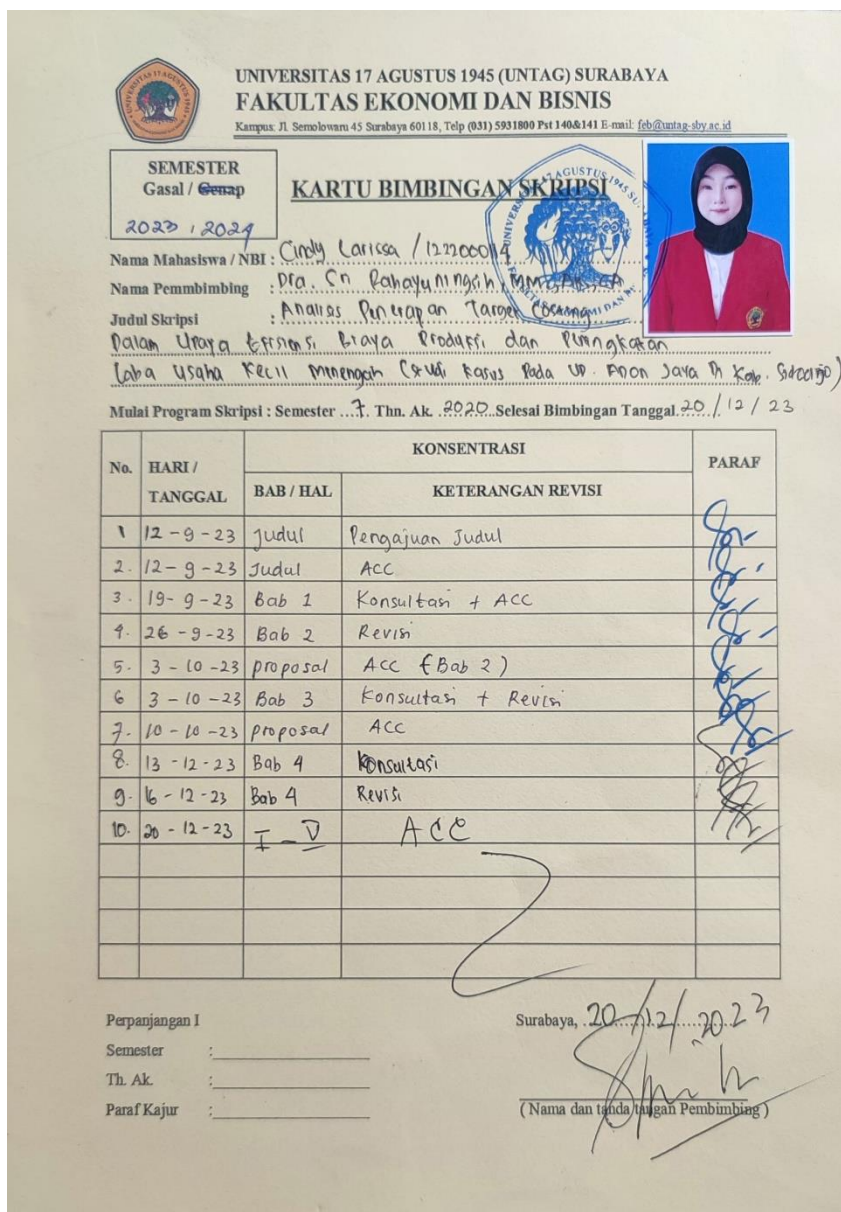 UNIVERSITAS 17 AGUSTUS 1945 (UNTAG) SURABAYA
FAKULTAS EKONOMI DAN BISNIS
Kampus: Jl. Semolowaru 45 Surabaya 60118, Telp (031) 5931800 Pst 140&141 E-mail: feb@untag-sby.ac.id
SEMESTER
Gasal / Genap
2023 / 2024
KARTU BIMBINGAN SKRIPSI
Nama Mahasiswa / NBI : Cindy Carissa /
Nama Pemmbimbing : Dra. Cn Rahayuningsih, MM
Judul Skripsi : Analisis Penerapan Target Costing
Dalam Upaya Efisiensi Biaya Produksi dan Peningkatan
Laba Usaha Kecil Menengah (Studi Kasus Pada UD. Jaya Di Kab. Sidoarjo)
Mulai Program Skripsi : Semester 7. Thn. Ak. 2020 Selesai Bimbingan Tanggal 20 / 12 / 23
No. HARI / TANGGAL KONSENTRASI PARAF
BAB / HAL KETERANGAN REVISI
1 12-9-23 Judul Pengajuan Judul
2. 12-9-23 Judul ACC
3. 19-9-23 Bab 1 Konsultasi + ACC
4. 26-9-23 Bab 2 Revisi
5. 3-10-23 proposal ACC (Bab 2)
6 3-10-23 Bab 3 Konsultasi + Revisi
7. 10-10-23 proposal ACC
8. 13-12-23 Bab 4 Konsultasi
9. 16-12-23 Bab 4 Revisi
10. 20-12-23 I - V ACC
Perpanjangan I
Semester :
Th. Ak. :
Paraf Kajur :
Surabaya, 20/12/2023
( Nama dan tanda tangan Pembimbing )